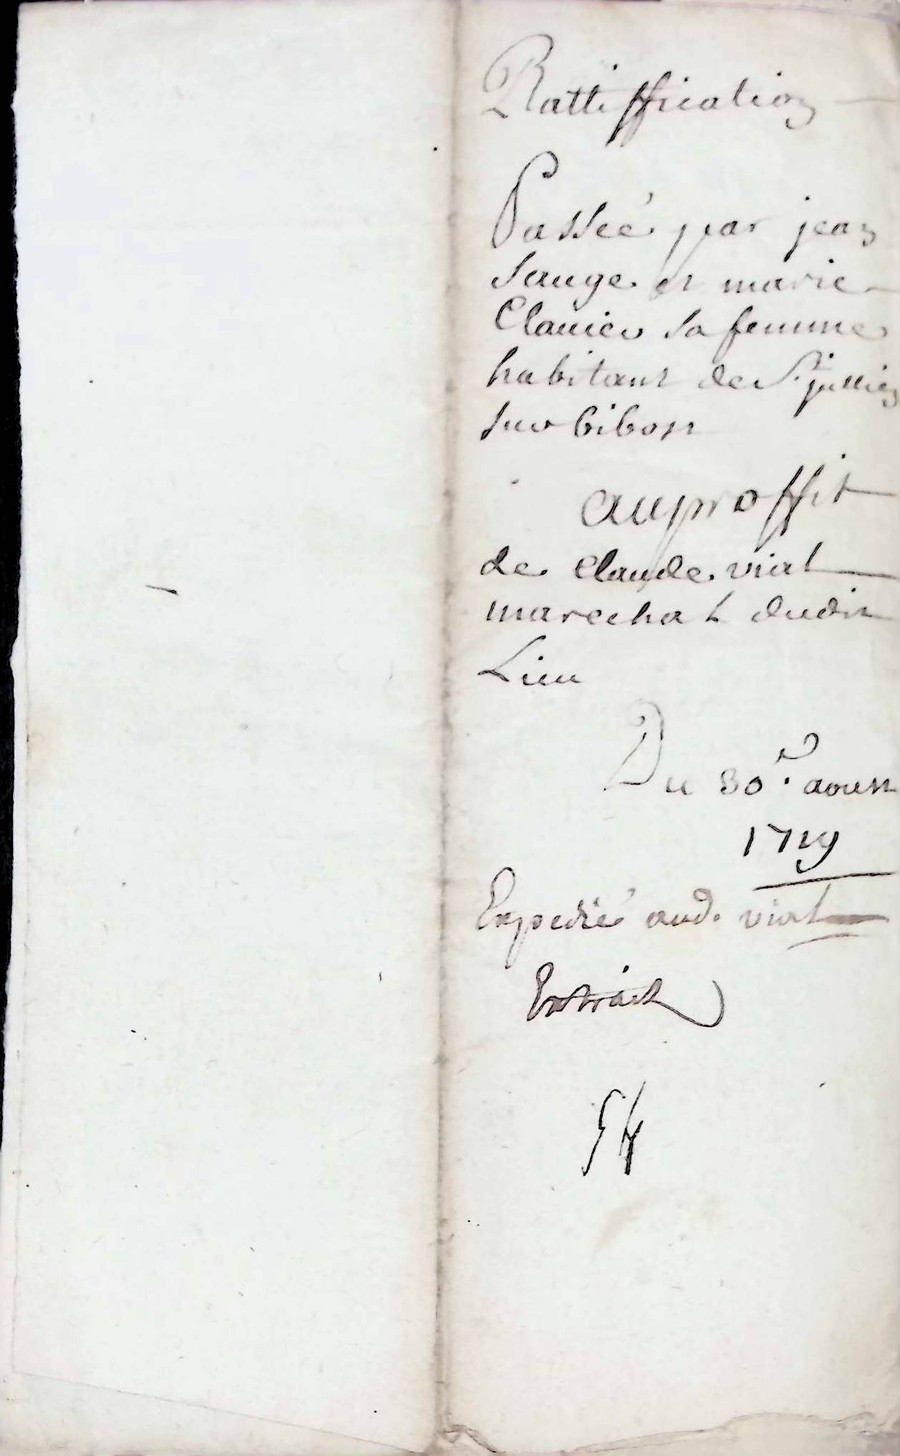 Rattiffication
Passeé par jean
Sauge et marie
Clavier sa femme
habitant de St. jullien
sur bibost
au proffit
de Claude vial
marechal dudit
Lieu
Du 30e. aoust
1719
Expedié aud. vial
Extrait